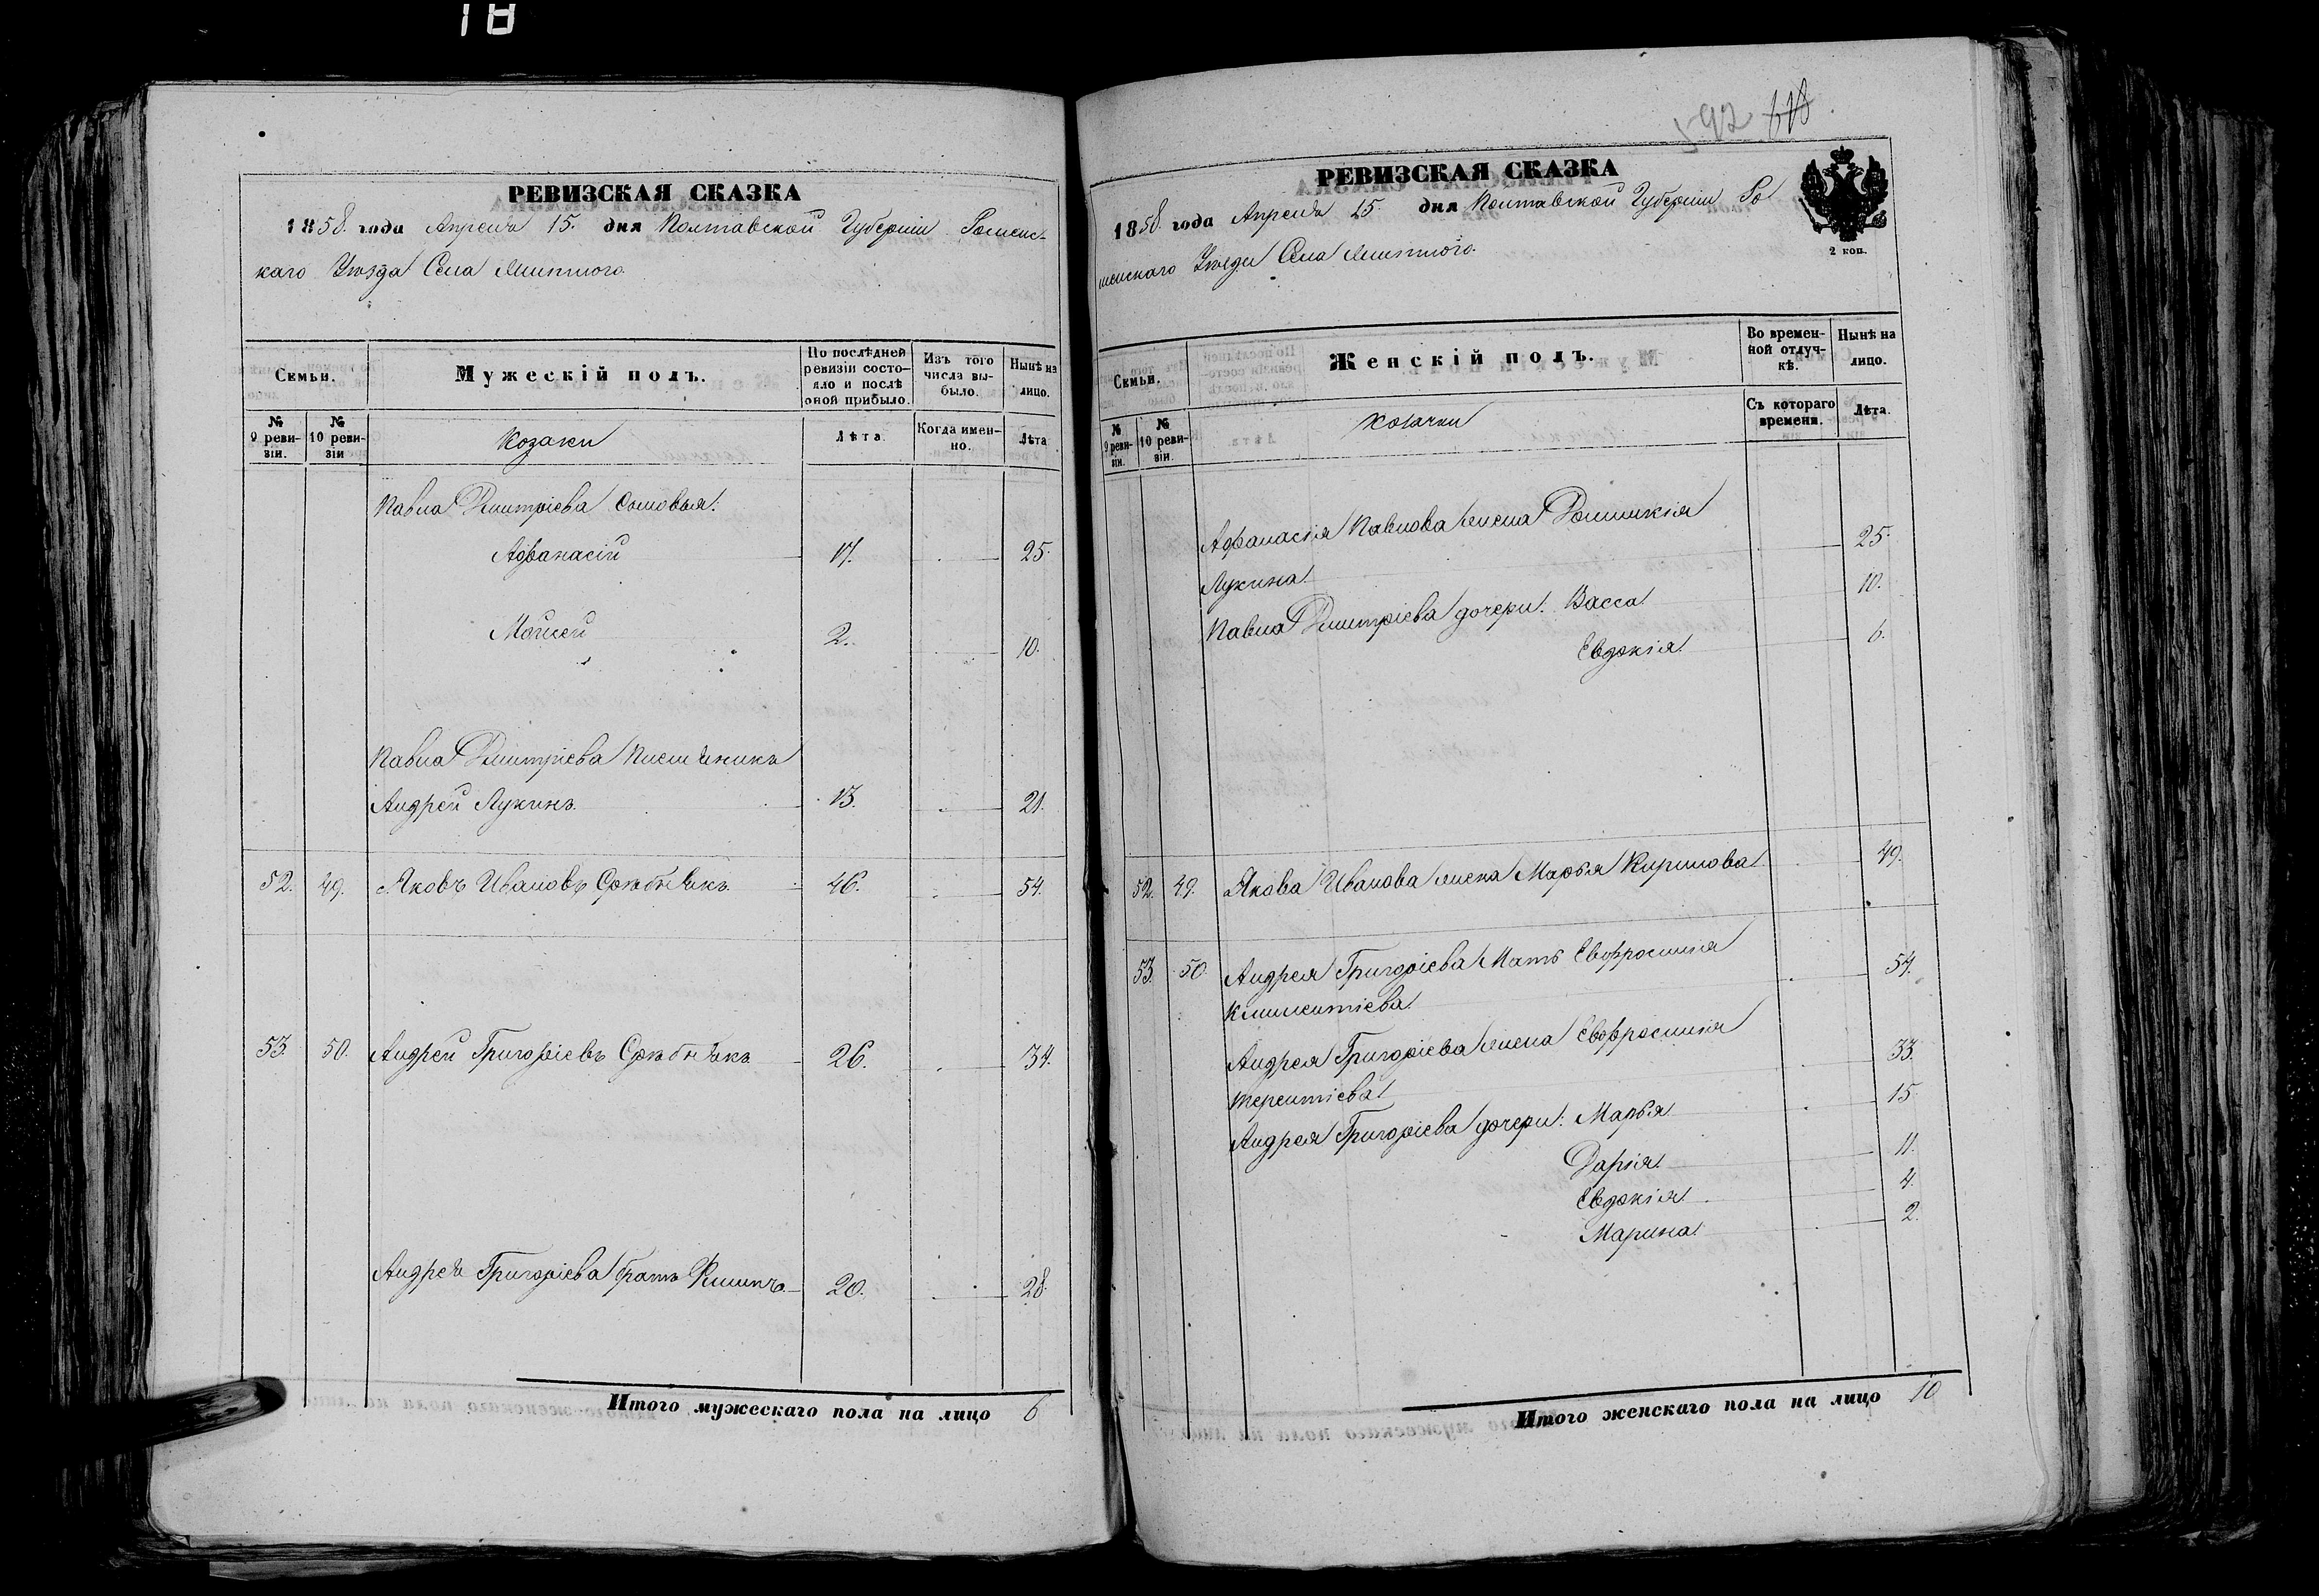 18
РЕВИЗСКАЯ СКАЗКА
1858 года Апреля 15. дня Полтавской Губерніи Роменс-
каго Уѣзда Села
Семьи.
Мужескій полъ.
По послѣдней ревизіи состояло и послѣ оной прибыло.
Изъ того числа выбыло.
Нынѣ на лицо.
№ 9 ревизіи.
№ 10 ревизіи
Козаки
Лѣта
Когда именно.
Лѣта
Павла Дмитріева Сыновья:
Афанасій 17. 25.
Мойсей 2. 10.
Павла Дмитріева Племѣникъ
Андрей Лукинъ 13. 21.
52. 49. Яковъ Ивановъ 46. 54.
53. 50. Андрей Григоріевъ 26. 34.
Андрея Григоріева братъ 20. 28.
Итого мужескаго пола на лицо 6
592
РЕВИЗСКАЯ СКАЗКА
1858 года Апреля 15. дня Полтавской Губерніи Ро
менскаго Уѣзда Села
2 коп.
Семьи.
Женскій полъ.
Во временной отлучкѣ.
Нынѣ на лицо.
№ 9 ревизіи.
№ 10 ревизіи.
Козачки
Съ котораго времени.
Лѣта.
Афанасія Павлова жена Домникія
Лукина 25.
Павла Дмитріева дочери: Васса 10.
Евдокія 6.
52. 49. Якова Иванова жена Марья Кирилова 49.
53. 50. Андрея Григоріева Мать Евфросинія
Климентіева 57.
Андрея Григоріева жена Евфросинія
Терентіева 33.
Андрея Григоріева дочери: Марья 15.
Дарія 11.
Евдокія 4.
Марина 2.
Итого женскаго пола на лицо 10